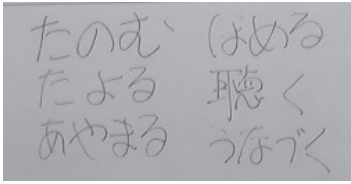 たのむ ほめる
たよる 聴く
あやまる うなづく